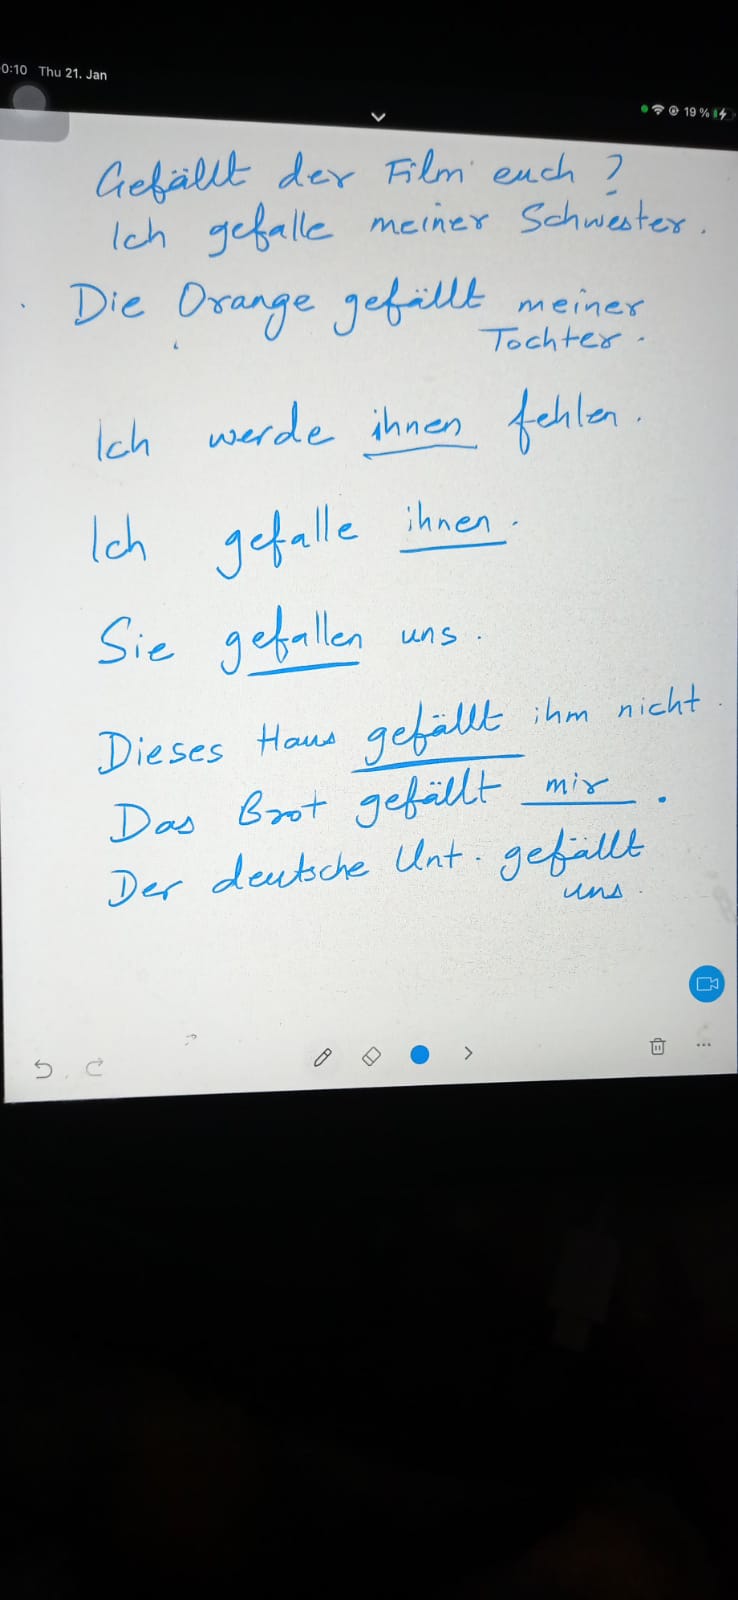 0:10 Thu 21. Jan
19 %
Gefällt der Film euch ?
Ich gefalle meiner Schwester.
Die Orange gefällt meiner
Tochter.
Ich werde ihnen fehlen.
Ich gefalle ihnen.
Sie gefallen uns.
Dieses Haus gefällt ihm nicht.
Das Brot gefällt mir.
Der deutsche Unt. gefällt
uns.